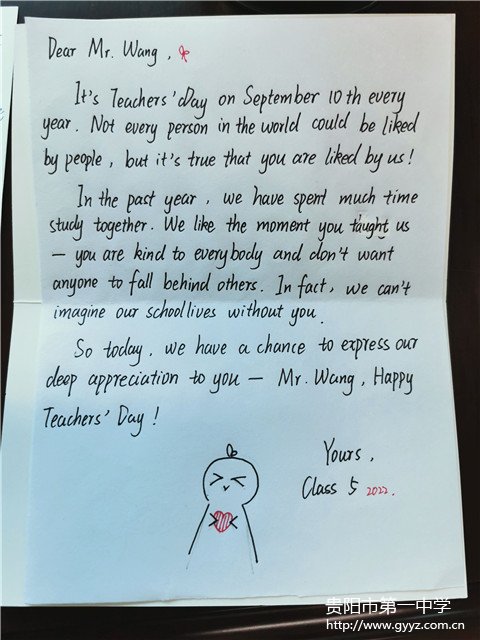 Dear Mr. Wang,
It's Teachers' Day on September 10 th every
year. Not every person in the world could be liked
by people, but it's true that you are liked by us!
In the past year, we have spent much time
study together. We like the moment you taught us
— you are kind to everybody and don't want
anyone to fall behind others. In fact, we can't
imagine our schoollives without you.
So today, we have a chance to express our
deep appreciation to you — Mr. Wang, Happy
Teachers' Day!
Yours,
Class 5 2022.
贵阳市第一中学
http://www.gyyz.com.cn